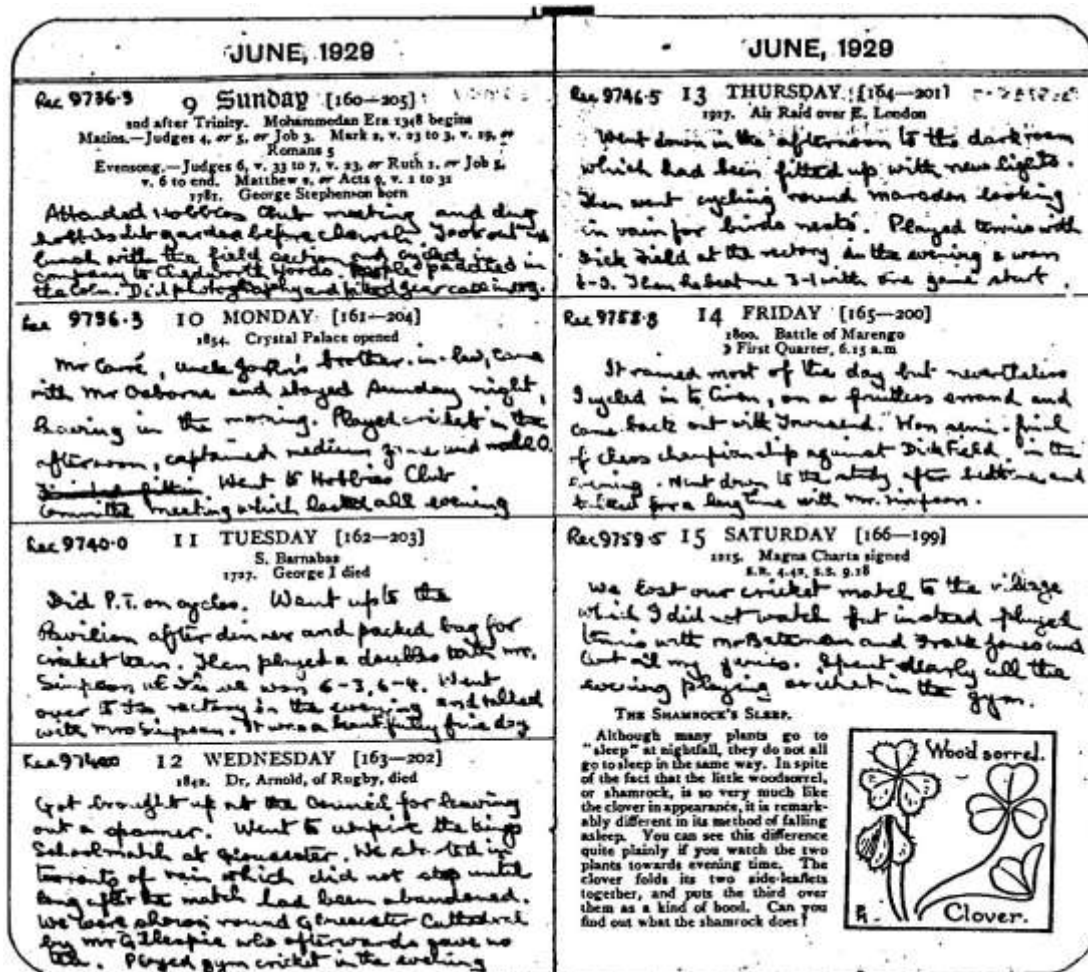 JUNE, 1929
Rec 9736.3 9 Sunday [160—205]
2nd after Trinity. Mohammedan Era 1348 begins
Matins.—Judges 4, or 5, or Job 3. Mark 2, v. 23 to 3, v. 19, or
Romans 5
Evensong.—Judges 6, v. 33 to 7, v. 23, or Ruth 1, or Job 5,
v. 6 to end. Matthew 2, or Acts 9, v. 1 to 31
1781. George Stephenson born
Attended Hobbies Club meeting and dug
garden before church. Took out
lunch with the field section and cycled in
company to Chedworth Woods. People paddled in
the Coln. Did photography and
Rec 9736.3 10 MONDAY [161—204]
1854. Crystal Palace opened
Mr Carré, uncle brother-in-law, came
with Mr Osborne and stayed Sunday night,
leaving in the morning. Played cricket in the
afternoon, captained medium game and made 0.
Went to Hobbies Club
Committee meeting which lasted all evening
Rec 9740.0 11 TUESDAY [162—203]
S. Barnabas
1727. George I died
Did P.T. on cycles. Went up to the
Pavilion after dinner and packed bag for
cricket team. Then played a doubles with Mr.
Simpson we won 6-3, 6-4. Went
over to the rectory in the evening and talked
with Mr Simpson. It was a beautifully fine day
Rec 9740.0 12 WEDNESDAY [163—202]
1842. Dr. Arnold, of Rugby, died
Got brought up at the Council for leaving
out a spanner. Went to umpire the Kings
School match at Gloucester. We started in
torrents of rain which did not stop until
long after the match had been abandoned.
We were shown round Gloucester Cathedral
by Mr Gillespie who afterwards gave us
tea. Played gym cricket in the evening
JUNE, 1929
Rec 9746.5 13 THURSDAY [164—201]
1917. Air Raid over E. London
Went down in the afternoon to the dark room
which had been fitted up with new lights.
Then went cycling round Marsden looking
in vain for birds nests. Played tennis with
Dick Field at the rectory in the evening & won
6-3. Then he beat me 3-1 with one game start.
Rec 9758.8 14 FRIDAY [165—200]
1800. Battle of Marengo
☽ First Quarter, 6.15 a.m
It rained most of the day but nevertheless
I cycled in to Ciren, on a fruitless errand and
came back out with Townsend. Won semi-final
of chess championship against Dick Field in the
evening. Went down to the study after bedtime and
talked for a long time with Mr. Simpson.
Rec 9759.5 15 SATURDAY [166—199]
1215. Magna Charta signed
S.R. 4.42, S.S. 9.18
We lost our cricket match to the village
which I did not watch but instead played
tennis with Mr Bateman and Frank Jones and
lost all my games. Spent nearly all the
evening playing cricket in the gym.
THE SHAMROCK'S SLEEP.
Although many plants go to
"sleep" at nightfall, they do not all
go to sleep in the same way. In spite
of the fact that the little woodsorrel,
or shamrock, is so very much like
the clover in appearance, it is remark-
ably different in its method of falling
asleep. You can see this difference
quite plainly if you watch the two
plants towards evening time. The
clover folds its two side-leaflets
together, and puts the third over
them as a kind of hood. Can you
find out what the shamrock does?
Wood sorrel.
Clover.